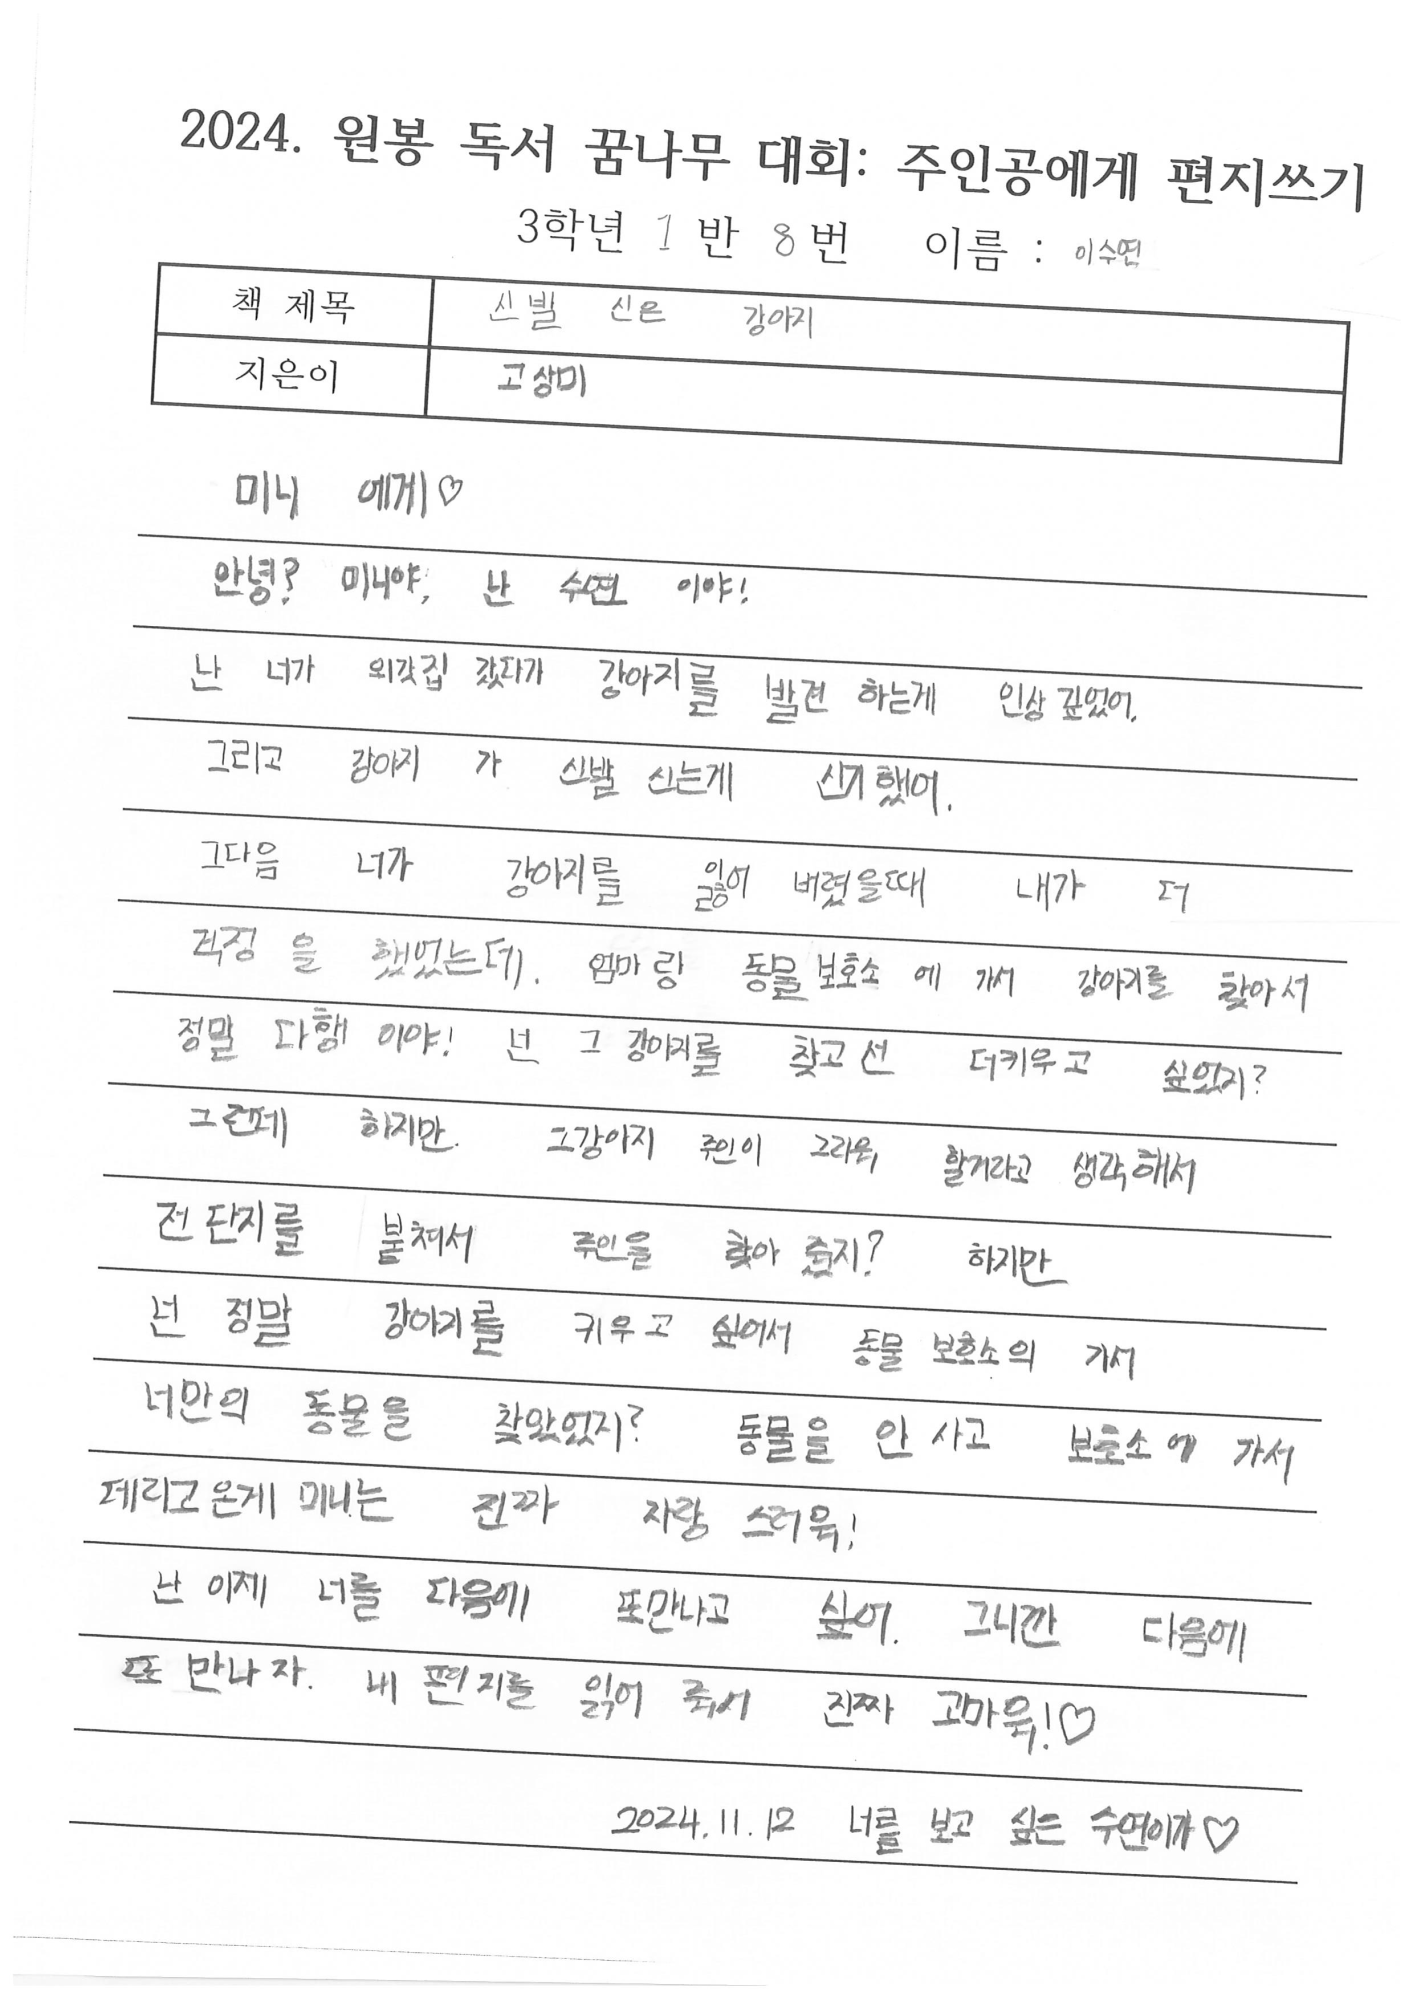 2024. 원봉 독서 꿈나무 대회: 주인공에게 편지쓰기
3학년 1 반 8 번 이름 : 이수연
책 제목 신발 신은 강아지
지은이 고상미
미니 에게♡
안녕? 미니야, 난 수연 이야!
난 너가 외갓집 갔다가 강아지를 발견 하는게 인상 깊었어.
그리고 강아지 가 신발 신는게 신기했어.
그다음 너가 강아지를 잃어 버렸을때 내가 더
걱정 을 했었는데. 엄마랑 동물 보호소 에 가서 강아지를 찾아서
정말 다행 이야! 넌 그 강아지를 찾고선 더키우고 싶었지?
그런데 하지만. 그강아지 주인이 그리워 할거라고 생각해서
전단지를 붙쳐서 주인을 찾아 줬지? 하지만
넌 정말 강아지를 키우고 싶어서 동물 보호소의 가서
너만의 동물을 찾았었지? 동물을 안 사고 보호소에 가서
데리고온게 미니는 진짜 자랑 스러워!
난 이제 너를 다음에 또만나고 싶어. 그니깐 다음에
또 만나자. 내 편지를 읽어 줘서 진짜 고마워!♡
2024.11.12 너를 보고 싶은 수연이가♡